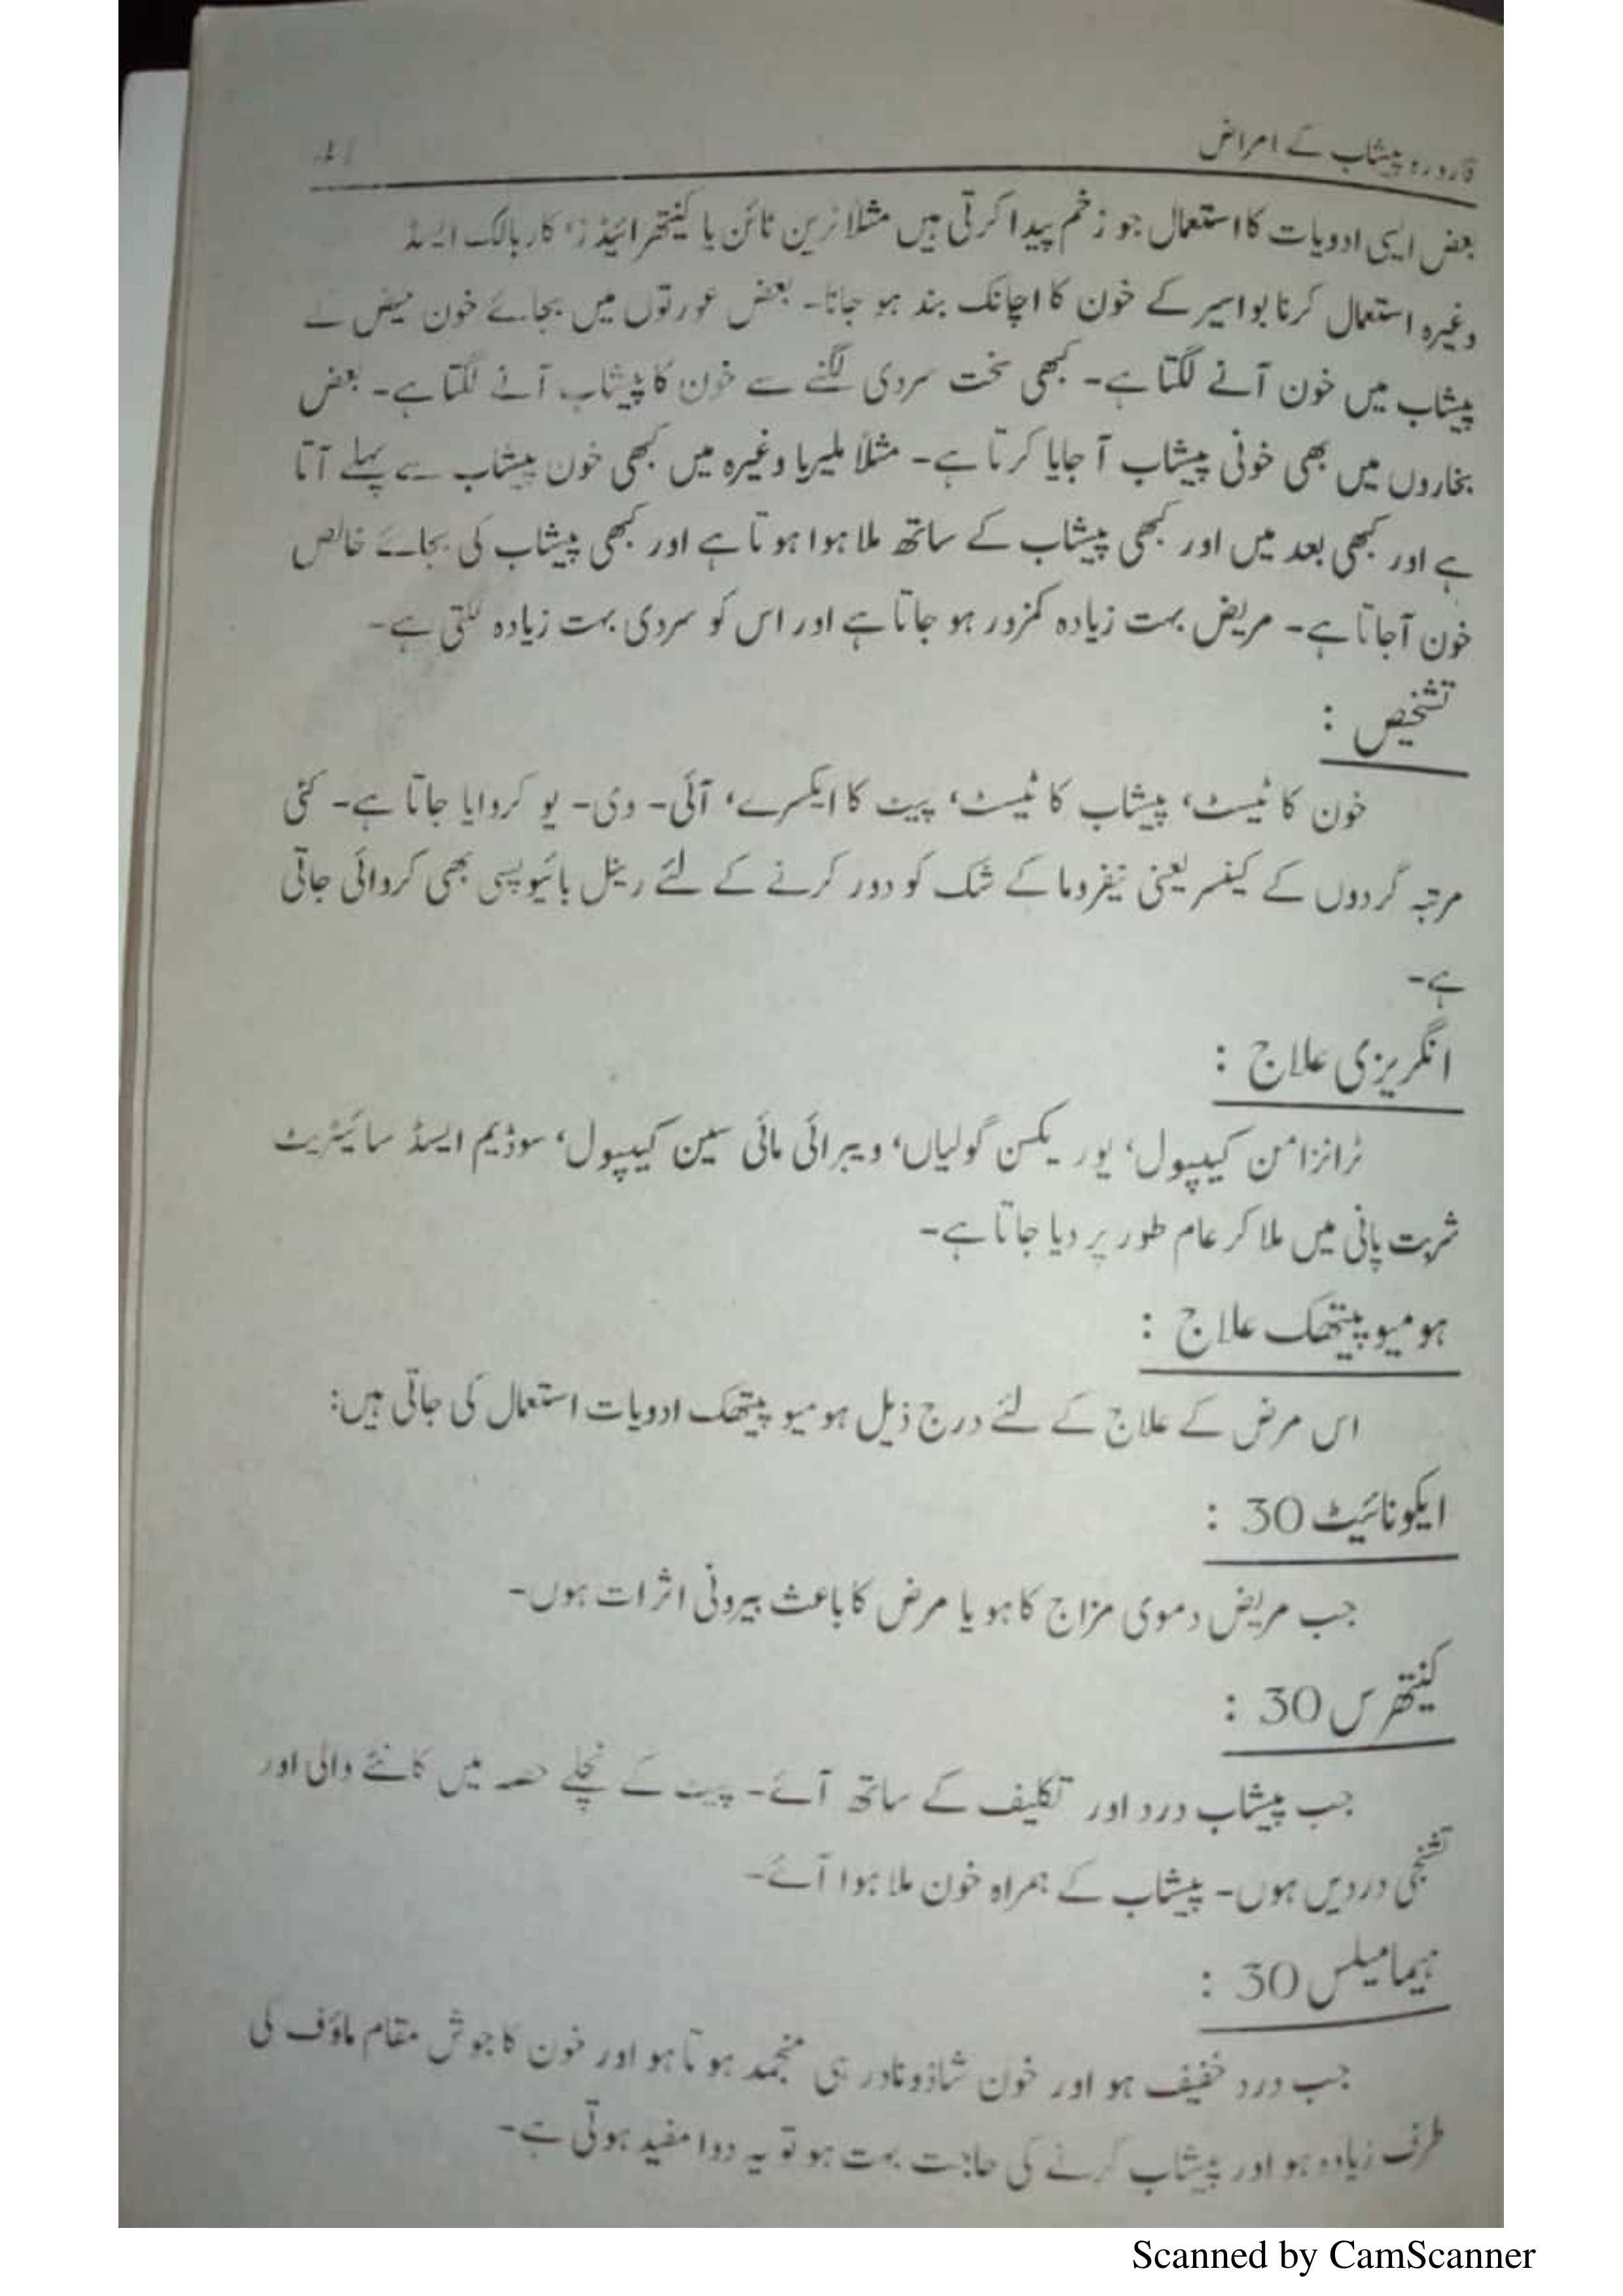 قارورہ پیشاب کے امراض
بعض ایسی ادویات کا استعمال جو زخم پیدا کرتی ہیں مثلا نرین ٹائن یا کینتھرائیڈز، کاربالک ایسڈ
وغیرہ استعمال کرنا بواسیر کے خون کا اچانک بند ہو جانا۔ بعض عورتوں میں بجائے خون حیض کے
پیشاب میں خون آنے لگتا ہے۔ کبھی سخت سردی لگنے سے خون کا پیشاب آنے لگتا ہے۔ بعض
بخاروں میں بھی خونی پیشاب آ جایا کرتا ہے۔ مثلاً ملیریا وغیرہ میں کبھی خون پیشاب سے پہلے آتا
ہے اور کبھی بعد میں اور کبھی پیشاب کے ساتھ ملا ہوا ہوتا ہے اور کبھی پیشاب کی بجائے خالص
خون آجاتا ہے۔ مریض بہت زیادہ کمزور ہو جاتا ہے اور اس کو سردی بہت زیادہ لگتی ہے۔
تشخیص :
خون کا ٹیسٹ، پیشاب کا ٹیسٹ، پیٹ کا ایکسرے، آئی۔ وی۔ یو کروایا جاتا ہے۔ کئی
مرتبہ گردوں کے کینسر یعنی نیفروما کے شک کو دور کرنے کے لئے رینل بائیوپسی بھی کروائی جاتی
ہے۔
انگریزی علاج :
ٹرانزامن کیپسول، یوریکسن گولیاں، ویبرائی مائی سین کیپسول، سوڈیم ایسڈ سائیٹریٹ
شربت پانی میں ملا کر عام طور پر دیا جاتا ہے۔
ہومیوپیتھک علاج :
اس مرض کے علاج کے لئے درج ذیل ہومیو پیتھک ادویات استعمال کی جاتی ہیں:
ایکونائیٹ 30 :
جب مریض دموی مزاج کا ہو یا مرض کا باعث بیرونی اثرات ہوں۔
کینتھرس 30 :
جب پیشاب درد اور تکلیف کے ساتھ آئے۔ پیٹ کے نچلے حصہ میں کاٹنے والی اور
تشنجی دردیں ہوں۔ پیشاب کے ہمراہ خون ملا ہوا آئے۔
ہیمامیلس 30 :
جب درد خفیف ہو اور خون شاذونادر ہی منجمد ہوتا ہو اور خون کا جوش مقام ماؤف کی
طرف زیادہ ہو اور پیشاب کرنے کی حاجت بہت ہو تو یہ دوا مفید ہوتی ہے۔
Scanned by CamScanner